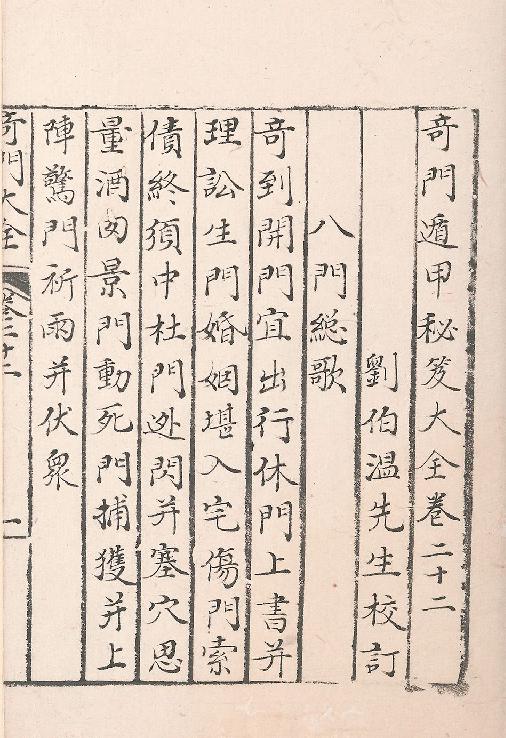 奇門遁甲秘笈大全卷二十二
劉伯温先生校訂
八門総歌
奇到開門宜出行休門上書并
理訟生門婚姻堪入宅傷門索
債終須中杜門迯閃并塞穴思
量酒囱景門動死門捕獲并上
陣驚門祈雨并伏衆
奇門大全 卷二十二 一